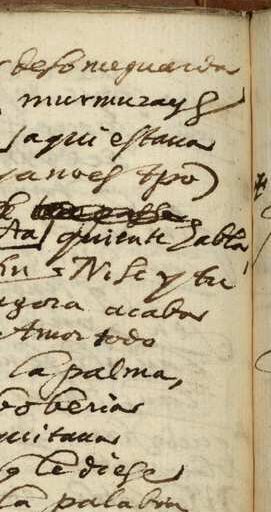 me guarda
murmurays
aqui estaua
ya no es tpo)
quien te habla
Nise y tu
agora acabar
Amor todo
la palma,
boberias
quitaua
q le diese
la palabra